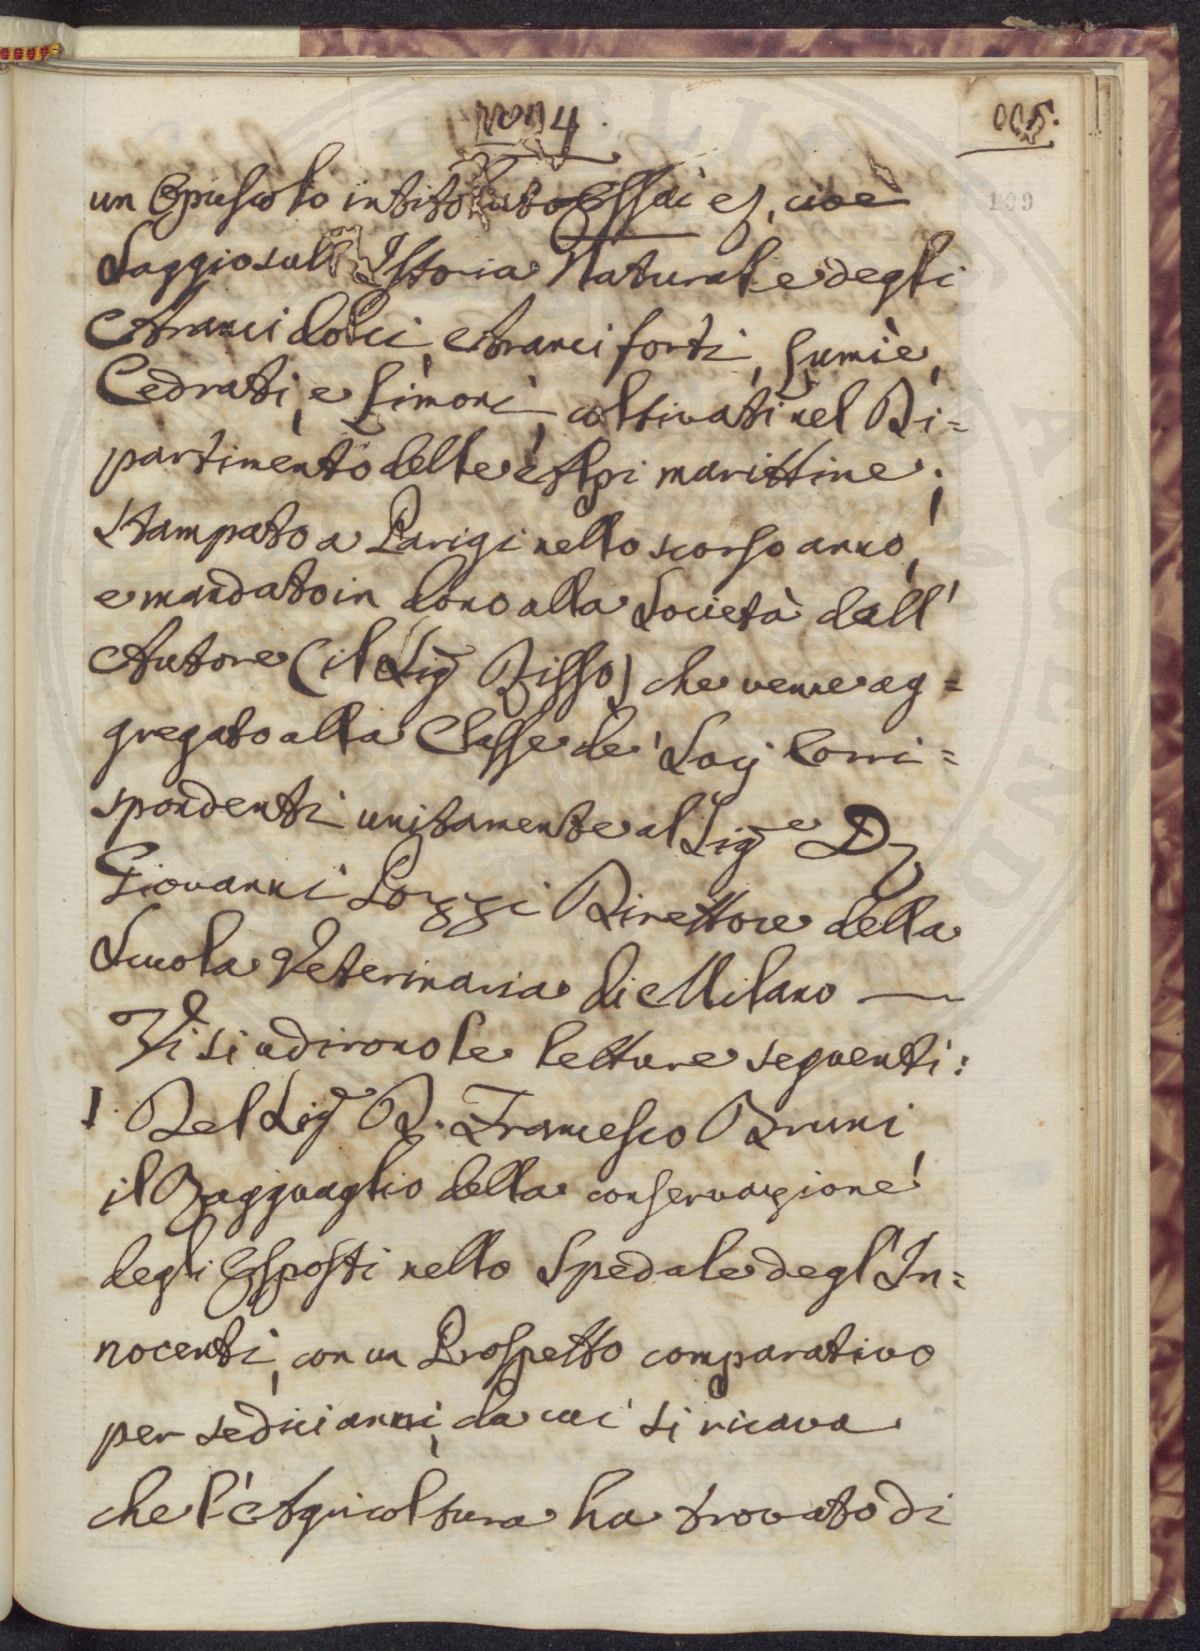 un Opuscolo intitolato Essai ec, cioè
Saggio sull'Istoria Naturale degli
Aranci dolci, Aranci forti, Lumìe,
Cedrati, e Limoni, coltivati nel Di=
partimento delle Alpi marittime;
Stampato a Parigi nello scorso anno,
e mandato in dono alla Società dall'
Autore (il Sig.r Risso) che venne ag=
gregato alla Classe de' Socj Corri=
spondenti unitamente al Sig.re D.
Giovanni Pozzi Direttore della
Scuola Veterinaria di Milano —
Vi si udirono le letture seguenti:
1. Del Sig.r D. Francesco Bruni
il Ragguaglio della conservazione
degli Esposti nello Spedale degl'In=
nocenti, con un Prospetto comparativo
per sedici anni, da cui si ricava
che l'Agricoltura ha trovato di
109